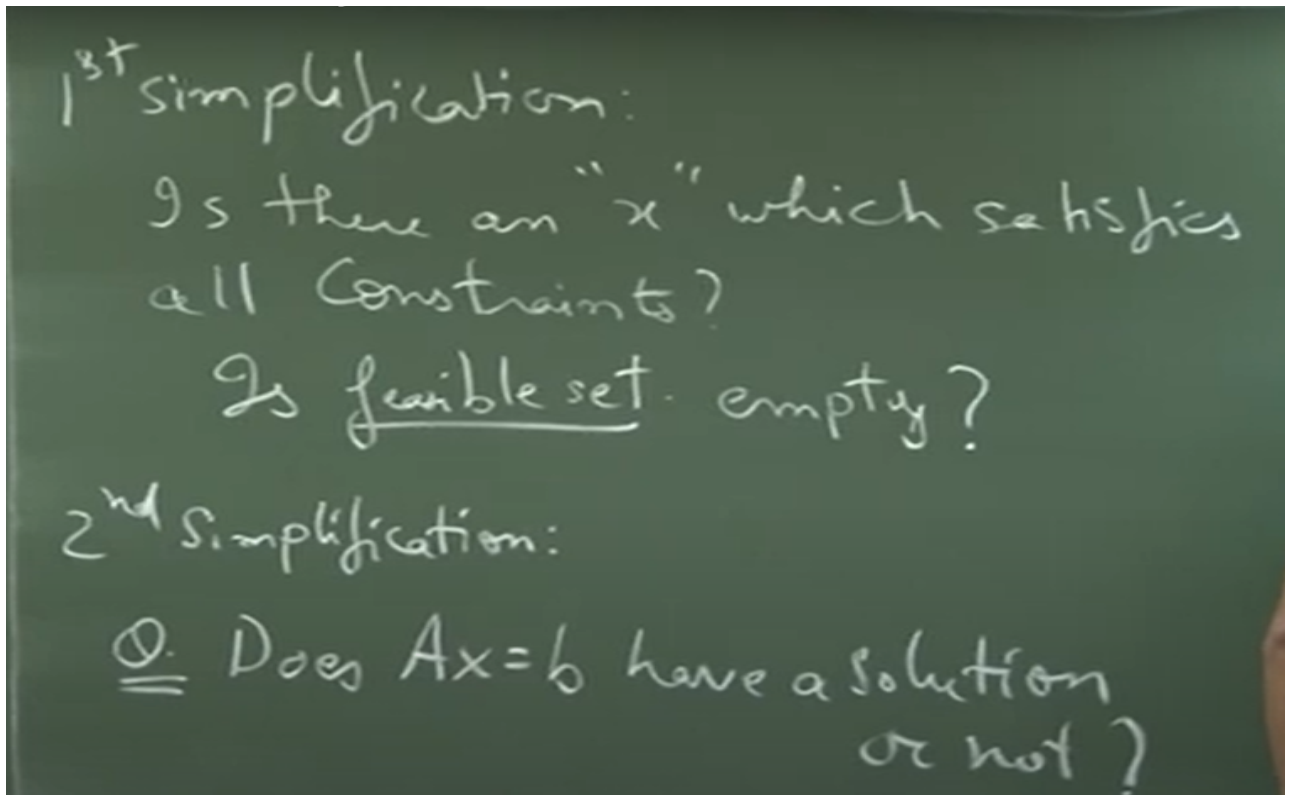 1st simplification:
Is there an "x" which satisfies
all Constraints?
Is feasible set empty?
2nd Simplification:
Q. Does Ax=b have a solution
or not?